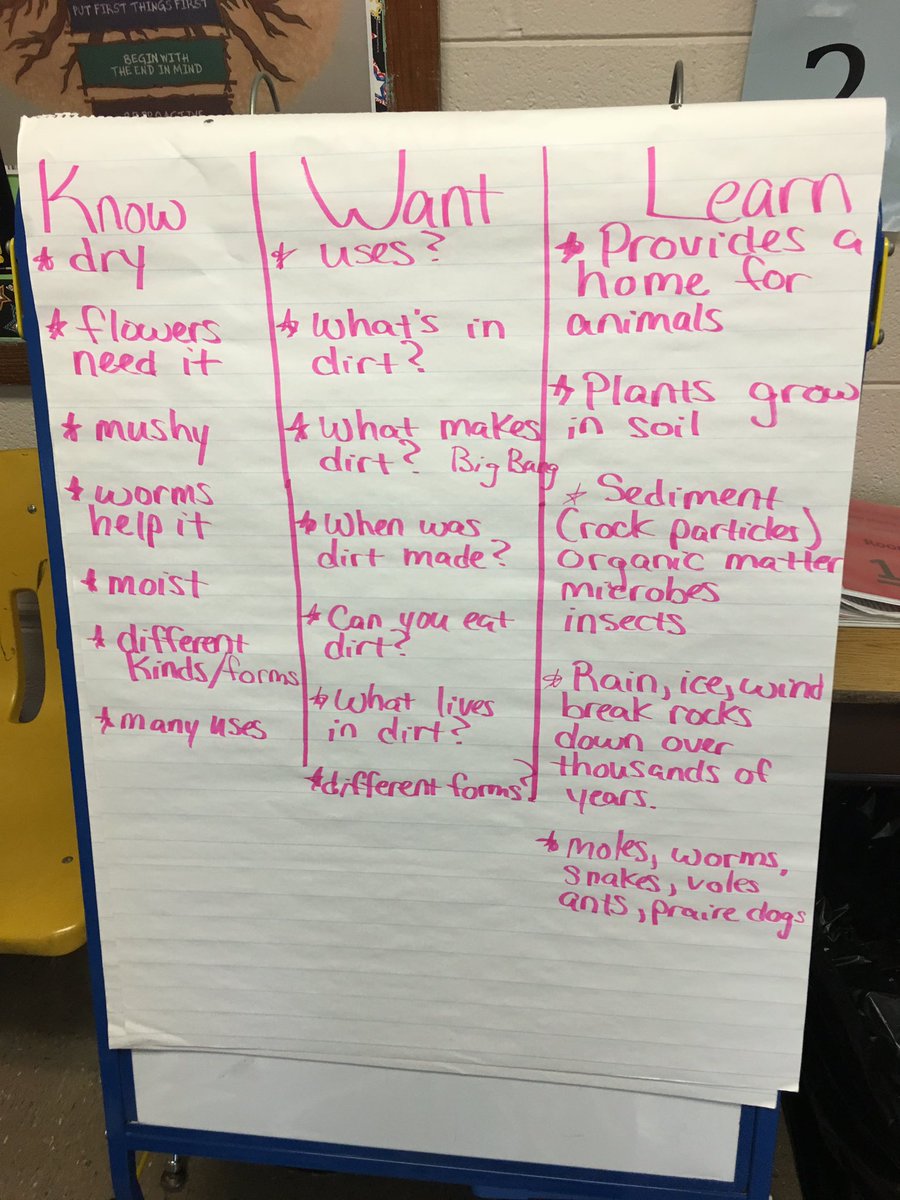 PUT FIRST THINGS FIRST
BEGIN WITH
THE END IN MIND
2
Know
dry
flowers
need it
mushy
worms
help it
moist
different
kinds/forms
many uses
Want
uses?
What's in
dirt?
What makes
dirt? Big Bang
When was
dirt made?
Can you eat
dirt?
What lives
in dirt?
different forms?
Learn
Provides a
home for
animals
Plants grow
in soil
Sediment
(rock particles)
organic matter
microbes
insects
Rain, ice, wind
break rocks
down over
thousands of
years.
moles, worms,
snakes, voles
ants, praire dogs